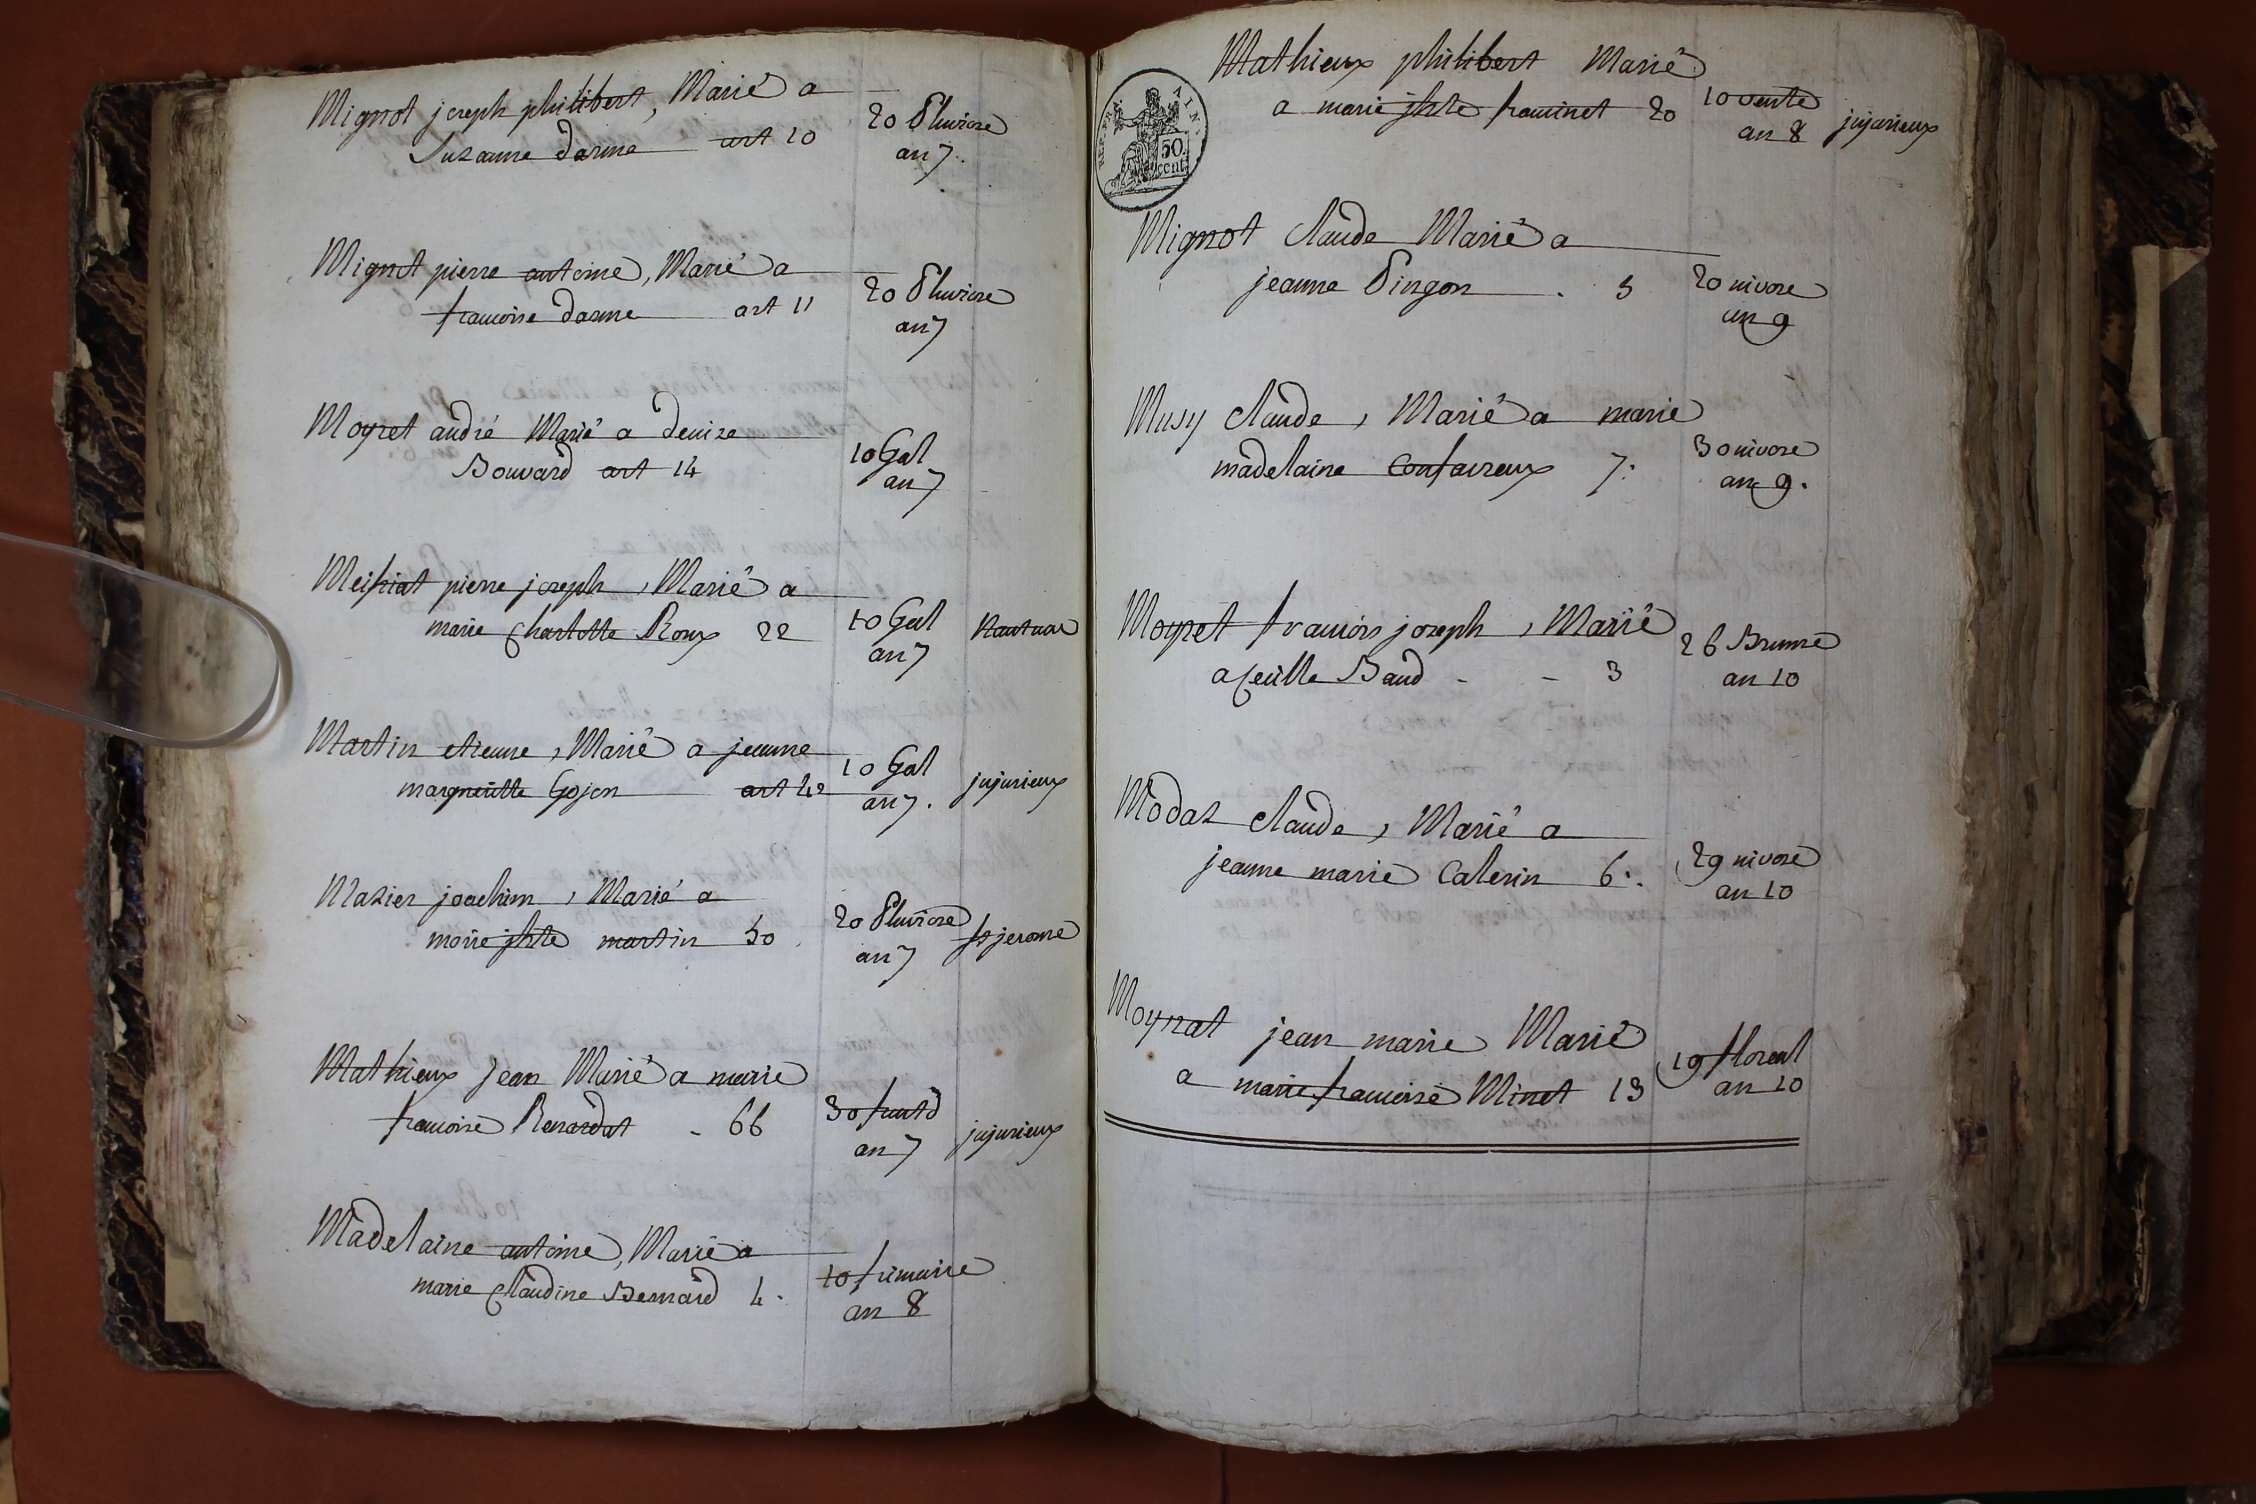 Mignot joseph philibert, Marié a
Suzanne darme art 10
20 Pluviose
an 7.
Mignot pierre antoine, Marié a
francoise darme art 11
20 Pluviose
an 7
Moyret andré Marié a denize
Bouvard art 14
10 Gal
an 7
Meifiat pierre joseph, Marié a
marie Charlotte Roux 22
10 Gal
an 7
Nantua
Martin etienne, Marié a jeanne
margueritte Gojon art 42
10 Gal
an 7.
jujurieux
Mazier joachim, Marié a
marie jhte martin 50
20 Pluviose
an 7
St jerome
Mathieux jean Marié a marie
francoise Renardat - 66
30 fruct d
an 7
jujurieux
Madelaine antoine, Marié a
marie Claudine Bernard 4.
10 frimaire
an 8
Mathieux philibert Marié
a marie jhte framinet 20
10 vente
an 8
jujurieux
REP. FRA. AIN.
50
cent
Mignot Claude Marié a
jeanne Pingon . 5
20 nivose
an 9
Musy Claude, Marié a marie
madelaine Confavreux 7.
30 nivose
an 9.
Moyret francois joseph, Marié
a Cecille Baud - - 3
26 Brumre
an 10
Modas Claude, Marié a
jeanne marie Calerin 6.
29 nivose
an 10
Moynat jean marie Marié
a marie francoise Minet 13
19 floreal
an 10